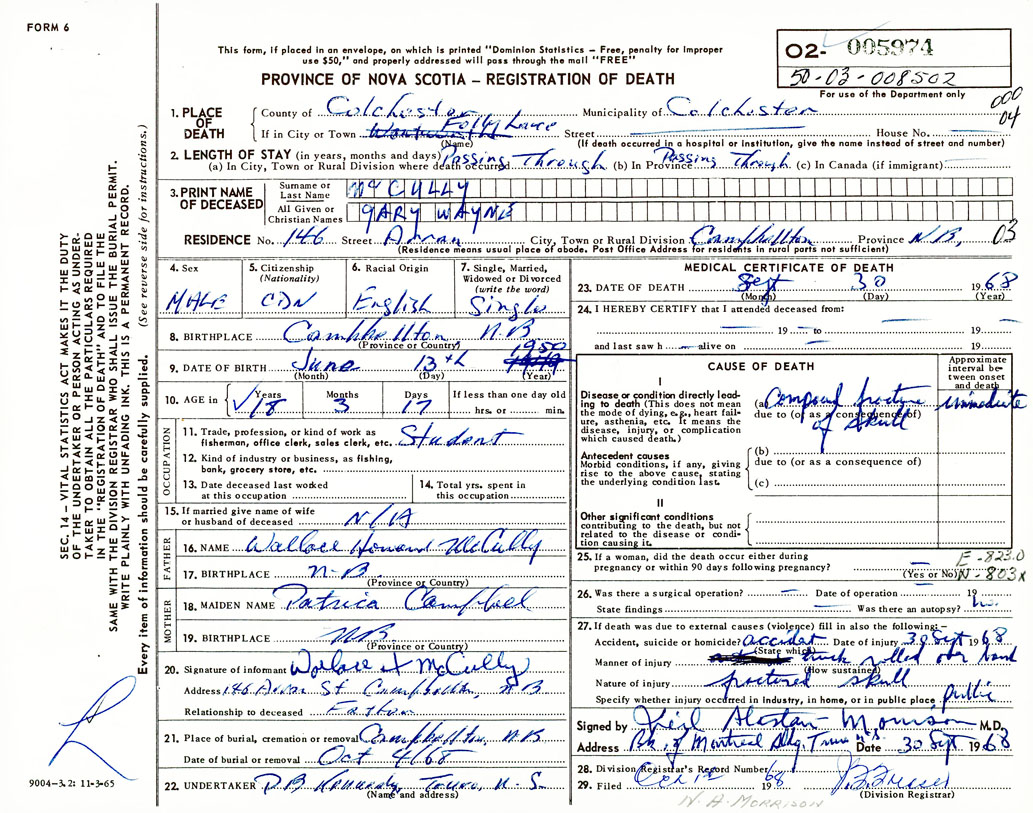 FORM 6
This form, if placed in an envelope, on which is printed "Dominion Statistics – Free, penalty for improper
use $50," and properly addressed will pass through the mail "FREE"
PROVINCE OF NOVA SCOTIA – REGISTRATION OF DEATH
02- 005974
50-03-008502
For use of the Department only
000
04
1. PLACE OF DEATH County of Colchester Municipality of Colchester
If in City or Town Folly Lake Street House No.
(Name) (If death occurred in a hospital or institution, give the name instead of street and number)
2. LENGTH OF STAY (in years, months and days)
(a) In City, Town or Rural Division where death occurred Passing Through (b) In Province Passing Through (c) In Canada (if immigrant)
3. PRINT NAME OF DECEASED Surname or Last Name McCULLY
All Given or Christian Names GARY WAYNE
RESIDENCE No. 146 Street Arran City, Town or Rural Division Campbellton Province N.B, 03
(Residence means usual place of abode. Post Office Address for residents in rural parts not sufficient)
4. Sex MALE
5. Citizenship (Nationality) CDN
6. Racial Origin English
7. Single, Married, Widowed or Divorced (write the word) Single
8. BIRTHPLACE Campbellton N.B
(Province or Country)
9. DATE OF BIRTH June 13th 1950
(Month) (Day) (Year)
10. AGE in Years 18 Months 3 Days 17 If less than one day old hrs. or min.
OCCUPATION
11. Trade, profession, or kind of work as fisherman, office clerk, sales clerk, etc. Student
12. Kind of industry or business, as fishing, bank, grocery store, etc.
13. Date deceased last worked at this occupation
14. Total yrs. spent in this occupation
15. If married give name of wife or husband of deceased N/A
FATHER
16. NAME Wallace Howard McCully
17. BIRTHPLACE N.B.
(Province or Country)
MOTHER
18. MAIDEN NAME Patrica Campbel
19. BIRTHPLACE N.B.
(Province or Country)
20. Signature of informant Wallace H McCully
Address 146 Arran St Campbellton, N B
Relationship to deceased Father
21. Place of burial, cremation or removal Campbellton, N.B
Date of burial or removal Oct 4/68
22. UNDERTAKER D.B Kennedy, Truro, N. S.
(Name and address)
MEDICAL CERTIFICATE OF DEATH
23. DATE OF DEATH Sept 30 1968
(Month) (Day) (Year)
24. I HEREBY CERTIFY that I attended deceased from:
19 to 19
and last saw h alive on 19
CAUSE OF DEATH
Approximate interval between onset and death
I
Disease or condition directly leading to death (This does not mean the mode of dying, e.g., heart failure, asthenia, etc. It means the disease, injury, or complication which caused death.)
(a) Compound fracture of skull immediate
due to (or as a consequence of)
Antecedent causes
Morbid conditions, if any, giving rise to the above cause, stating the underlying condition last.
(b)
due to (or as a consequence of)
(c)
II
Other significant conditions contributing to the death, but not related to the disease or condition causing it.
25. If a woman, did the death occur either during pregnancy or within 90 days following pregnancy?
(Yes or No)
E-823.0
N-803x
26. Was there a surgical operation? Date of operation 19
State findings Was there an autopsy? no.
27. If death was due to external causes (violence) fill in also the following:–
Accident, suicide or homicide? accident Date of injury 30 Sept 1968
(State which)
Manner of injury truck rolled over
(How sustained)
Nature of injury fractured skull
Specify whether injury occurred in industry, in home, or in public place public
Signed by Neil Alastair Morrison M.D.
Address Bk. of Montreal Bldg, Truro N.S Date 30 Sept 1968
28. Division Registrar's Record Number
29. Filed Oct 1968
(Division Registrar)
N. A. MORRISON
SEC. 14 – VITAL STATISTICS ACT MAKES IT THE DUTY
OF THE UNDERTAKER OR PERSON ACTING AS UNDER-
TAKER TO OBTAIN ALL THE PARTICULARS REQUIRED
IN THE "REGISTRATION OF DEATH" AND TO FILE THE
SAME WITH THE DIVISION REGISTRAR WHO SHALL ISSUE THE BURIAL PERMIT.
WRITE PLAINLY WITH UNFADING INK. THIS IS A PERMANENT RECORD.
Every item of information should be carefully supplied. (See reverse side for instructions.)
9004-3.2: 11-3-65